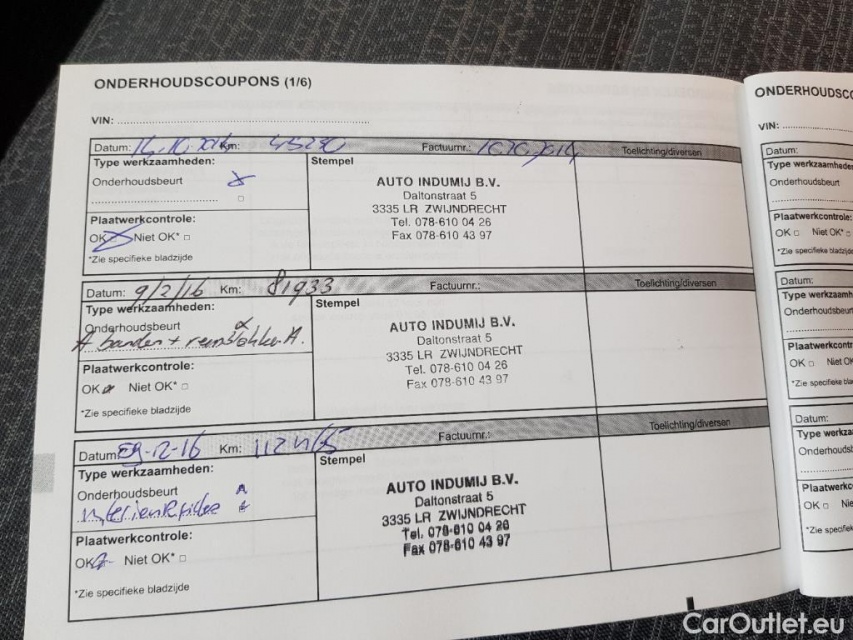 ONDERHOUDSCOUPONS (1/6)
VIN:
Datum: 16.10.2014 Km: 45290 Factuurnr.: Toelichting/diversen
Type werkzaamheden:
Onderhoudsbeurt
Plaatwerkcontrole:
OK Niet OK*
*Zie specifieke bladzijde
Stempel
AUTO INDUMIJ B.V.
Daltonstraat 5
3335 LR ZWIJNDRECHT
Tel. 078-610 04 26
Fax 078-610 43 97
Datum: 9/2/16 Km: 81933 Factuurnr.: Toelichting/diversen
Type werkzaamheden:
Onderhoudsbeurt
A banden + remblokken A.
Plaatwerkcontrole:
OK Niet OK*
*Zie specifieke bladzijde
Stempel
AUTO INDUMIJ B.V.
Daltonstraat 5
3335 LR ZWIJNDRECHT
Tel. 078-610 04 26
Fax 078-610 43 97
Datum: 29-12-16 Km: Factuurnr.: Toelichting/diversen
Type werkzaamheden:
Onderhoudsbeurt
Plaatwerkcontrole:
OK Niet OK*
*Zie specifieke bladzijde
Stempel
AUTO INDUMIJ B.V.
Daltonstraat 5
3335 LR ZWIJNDRECHT
Tel. 078-610 04 26
Fax 078-610 43 97
ONDERHOUDSCO
VIN:
Datum:
Type werkzaamhede
Onderhoudsbeurt
Plaatwerkcontrole:
OK Niet OK*
*Zie specifieke bladz
Datum:
Type werkzaamh
Onderhoudsbeurt
Plaatwerkcontr
OK Niet OK
*Zie specifieke b
Datum:
Type werkza
Onderhoudst
Plaatwerkc
OK Nie
*Zie specifiek
CarOutlet.eu